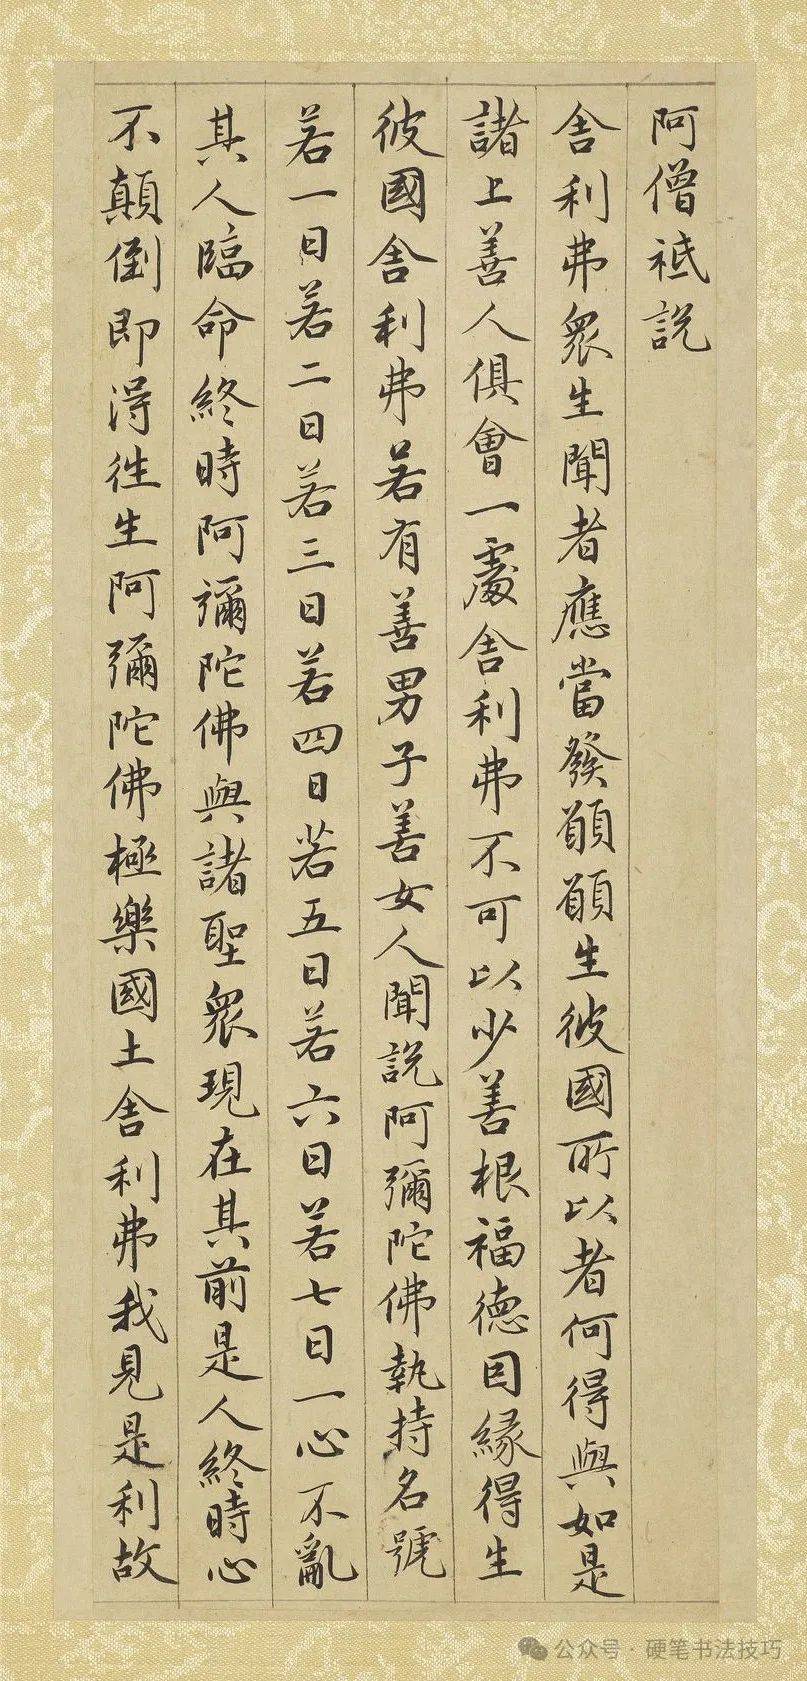 阿僧祇說
舎利弗眾生聞者應當發願願生彼國所以者何得與如是
諸上善人俱會一處舎利弗不可以少善根福德因緣得生
彼國舎利弗若有善男子善女人聞說阿彌陀佛執持名號
若一日若二日若三日若四日若五日若六日若七日一心不亂
其人臨命終時阿彌陀佛與諸聖眾現在其前是人終時心
不顛倒即得往生阿彌陀佛極樂國土舎利弗我見是利故
公众号·硬笔书法技巧